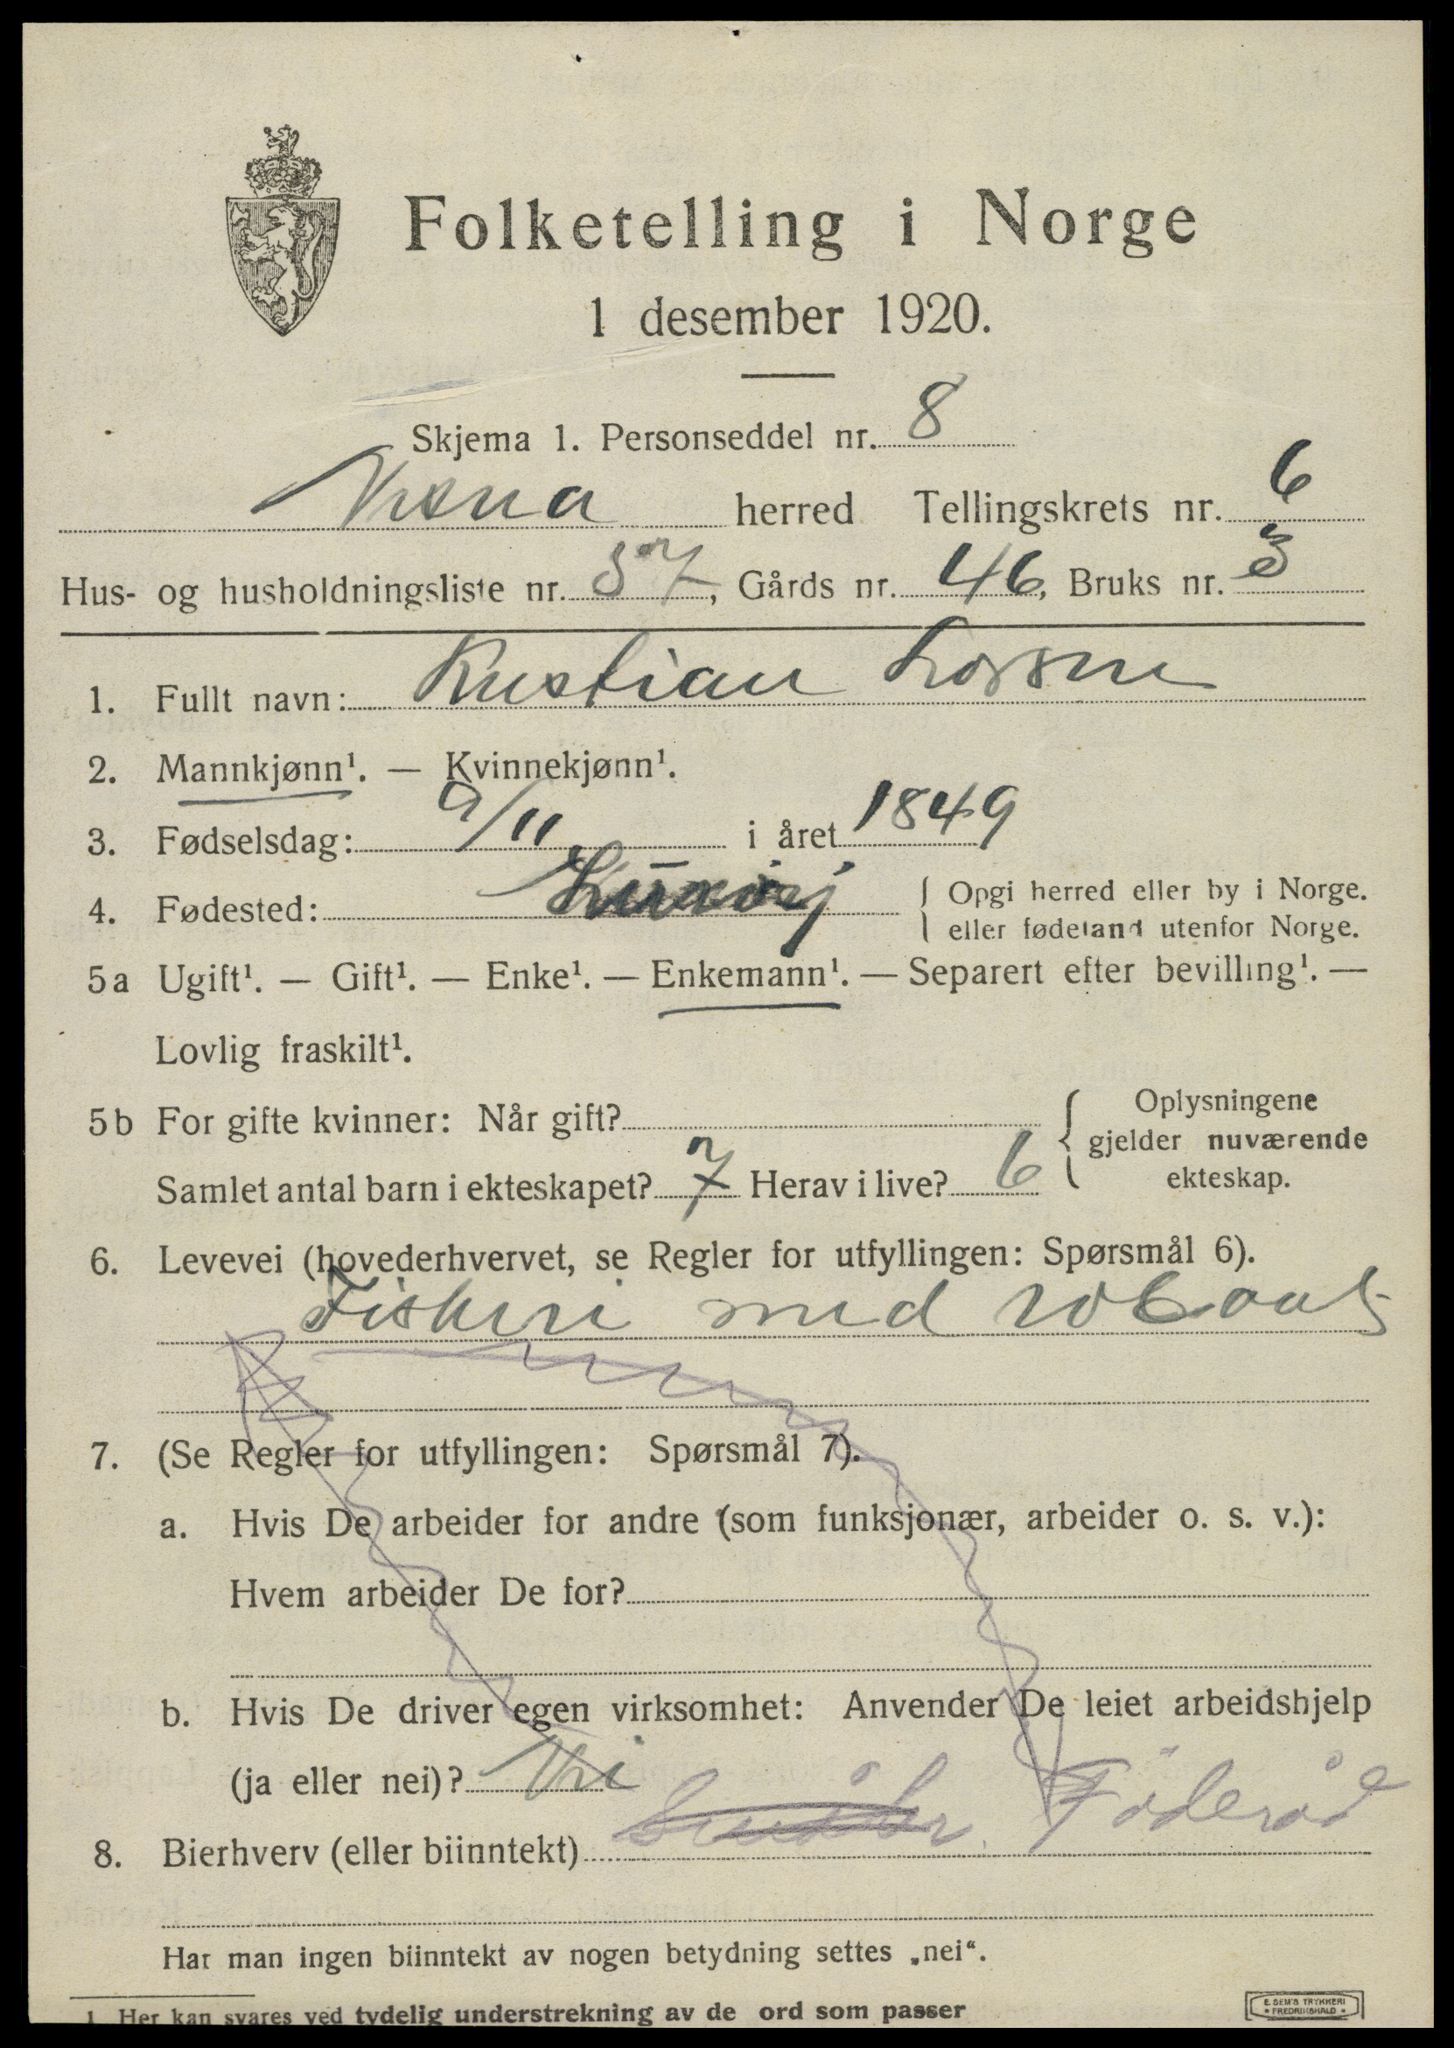 Folketelling i Norge
1 desember 1920.
Skjema 1. Personseddel nr. 8
Nesna herred Tellingskrets nr. 6
Hus- og husholdningsliste nr. 37, Gårds nr. 46, Bruks nr. 3
1. Fullt navn: Kristian
2. Mannkjønn¹. — Kvinnekjønn¹.
3. Fødselsdag: 9/11 i året 1849
4. Fødested: { Opgi herred eller by i Norge.
eller fødeland utenfor Norge.
5a Ugift¹. — Gift¹. — Enke¹. — Enkemann¹. — Separert efter bevilling¹. —
Lovlig fraskilt¹.
5b For gifte kvinner: Når gift? { Oplysningene
gjelder nuværende
Samlet antal barn i ekteskapet? 7 Herav i live? 6 ekteskap.
6. Levevei (hovederhvervet, se Regler for utfyllingen: Spørsmål 6).
Fiskeri med robaat
7. (Se Regler for utfyllingen: Spørsmål 7).
a. Hvis De arbeider for andre (som funksjonær, arbeider o. s. v.):
Hvem arbeider De for?
b. Hvis De driver egen virksomhet: Anvender De leiet arbeidshjelp
(ja eller nei)? Nei
8. Bierhverv (eller biinntekt) Föderåd
Har man ingen biinntekt av nogen betydning settes „nei“.
1. Her kan svares ved tydelig understrekning av de ord som passer
E. SEM'S TRYKKERI
FREDRIKSHALD